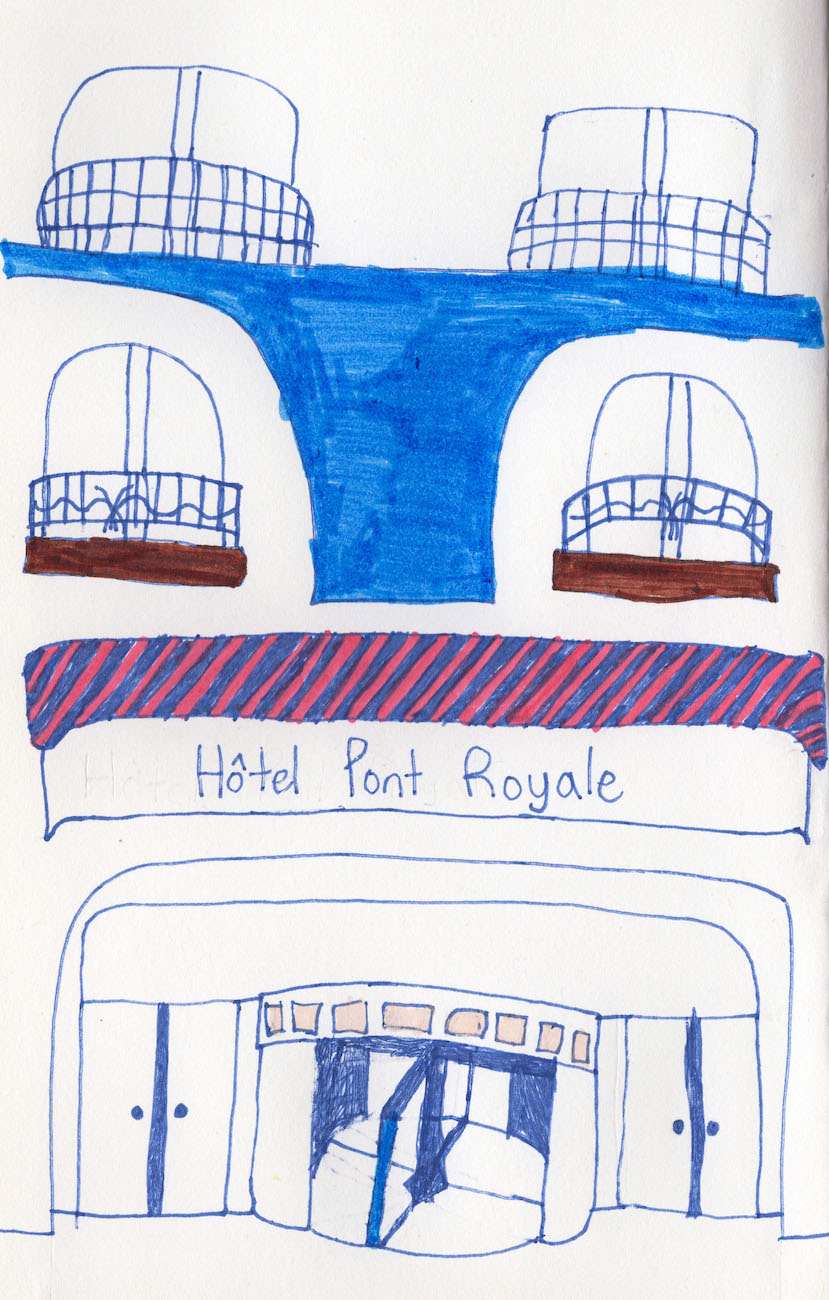 Hôtel Pont Royale